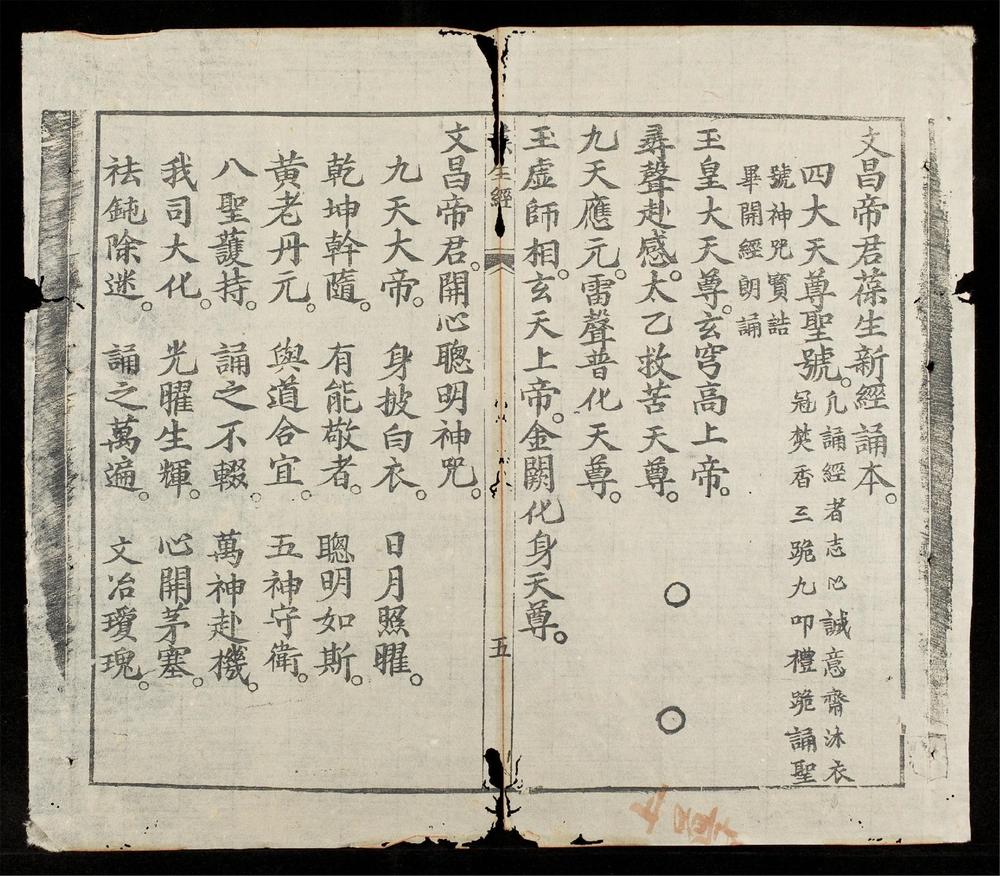 文昌帝君葆生新經誦本。
四大天尊聖號。凢誦經者志心誠意齋沐衣
冠焚香三跪九叩禮跪誦聖
號神咒寶誥
畢開經朗誦
玉皇大天尊。玄穹高上帝。
尋聲赴感。太乙救苦天尊。
九天應元。雷聲普化天尊。
玉虛師相。玄天上帝。金闕化身天尊。
生經
五
文昌帝君。開心聰明神咒。
九天大帝。身披白衣。日月照曜。
乾坤幹隨。有能敬者。聰明如斯。
黃老丹元。與道合宜。五神守衛。
八聖護持。誦之不輟。萬神赴機。
我司大化。光曜生輝。心開茅塞。
祛鈍除迷。誦之萬遍。文冶瓊瑰。